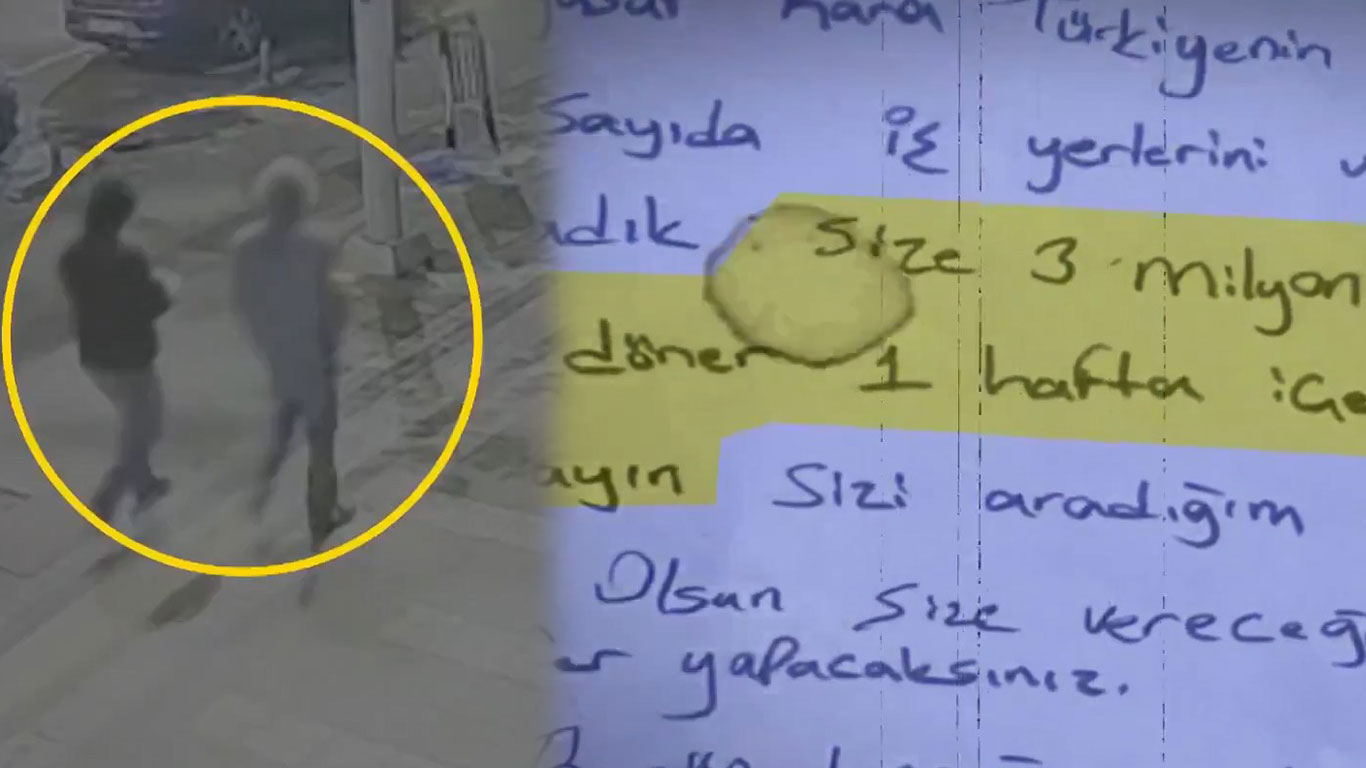 kara Türkiyenin
Sayıda iş yerlerini
adık Size 3 milyon
döner 1 hafta içe
ayın Sizi aradığım
Olsun size vereceğ
ar yapacaksınız.